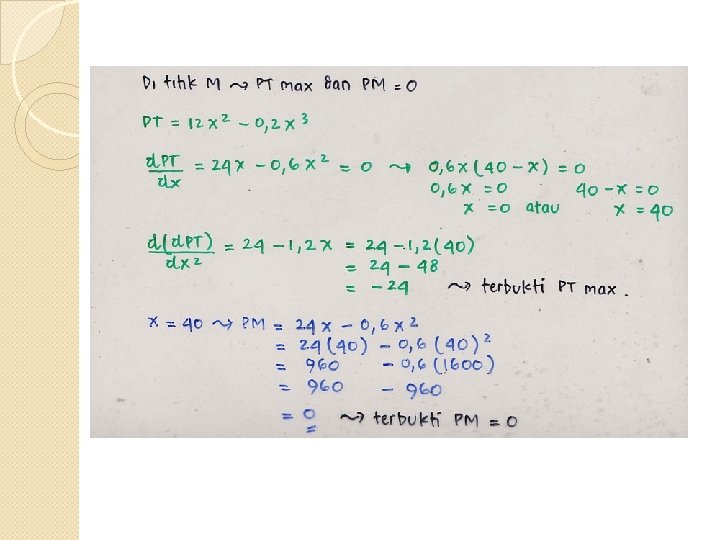 Di titik M ⤳ PT max dan PM = 0
PT = 12x² - 0,2x³
dPT/dx = 24x - 0,6x² = 0 ⤳ 0,6x(40-x) = 0
0,6x = 0 40-x = 0
x = 0 atau x = 40
d(dPT)/dx2 = 24 - 1,2x = 24 - 1,2(40)
= 24 - 48
= -24 ⤳ terbukti PT max.
x = 40 ⤳ PM = 24x - 0,6x²
= 24(40) - 0,6(40)²
= 960 - 0,6(1600)
= 960 - 960
= 0 ⤳ terbukti PM = 0